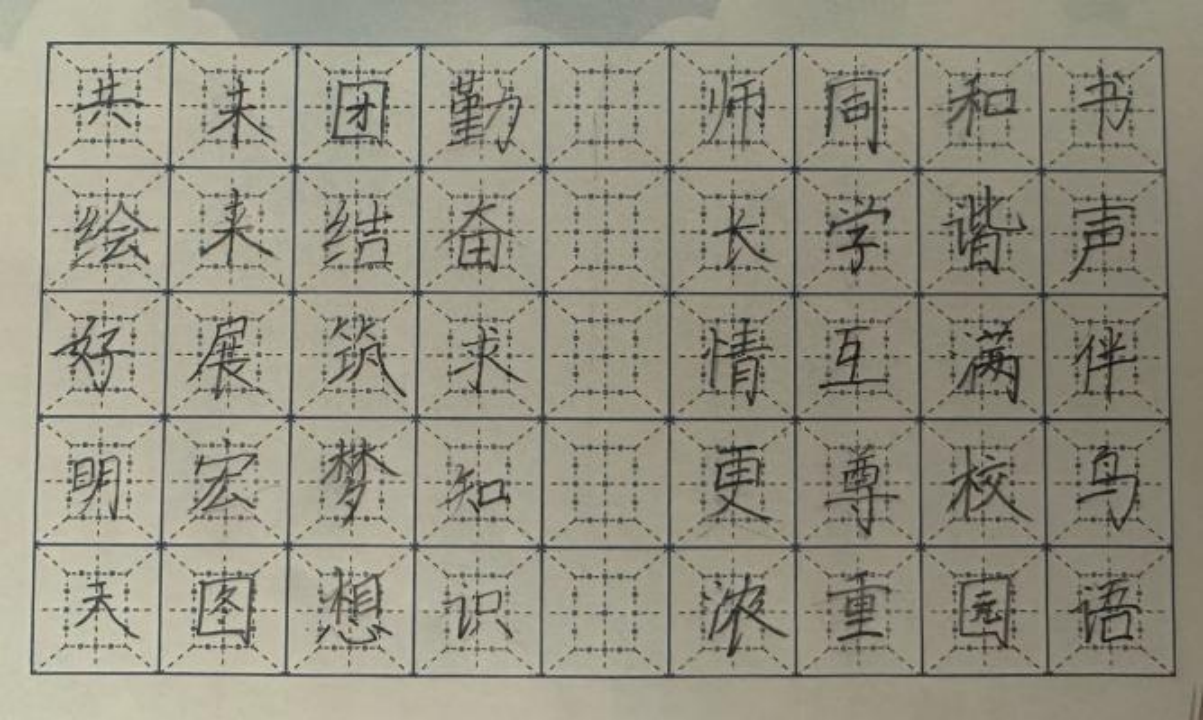 书声伴鸟语
和谐满校园
同学互尊重
师长情更浓
勤奋求知识
团结筑梦想
未来展宏图
共绘好明天